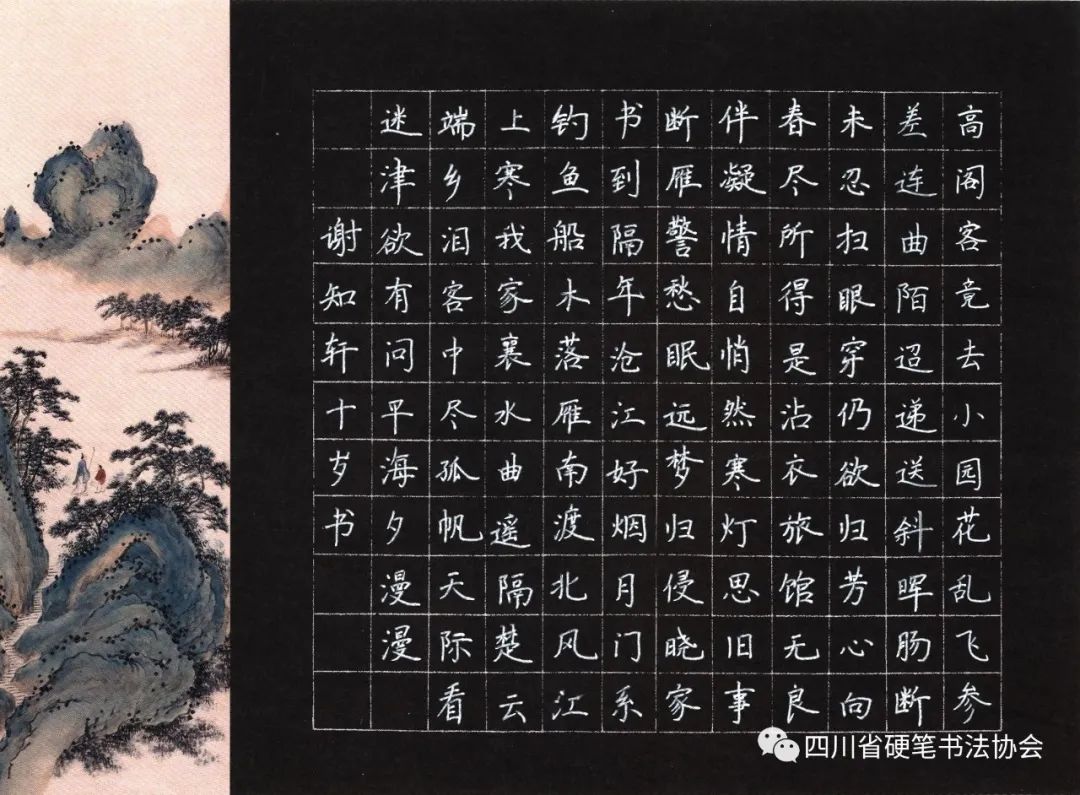 高阁客竞去小园花乱飞参
差连曲陌迢递送斜晖肠断
未忍扫眼穿仍欲归芳心向
春尽所得是沾衣旅馆无良
伴凝情自悄然寒灯思旧事
断雁警愁眠远梦归侵晓家
书到隔年沧江好烟月门系
钓鱼船木落雁南渡北风江
上寒我家襄水曲遥隔楚云
端乡泪客中尽孤帆天际看
迷津欲有问早海夕漫漫
谢知轩十岁书
四川省硬笔书法协会